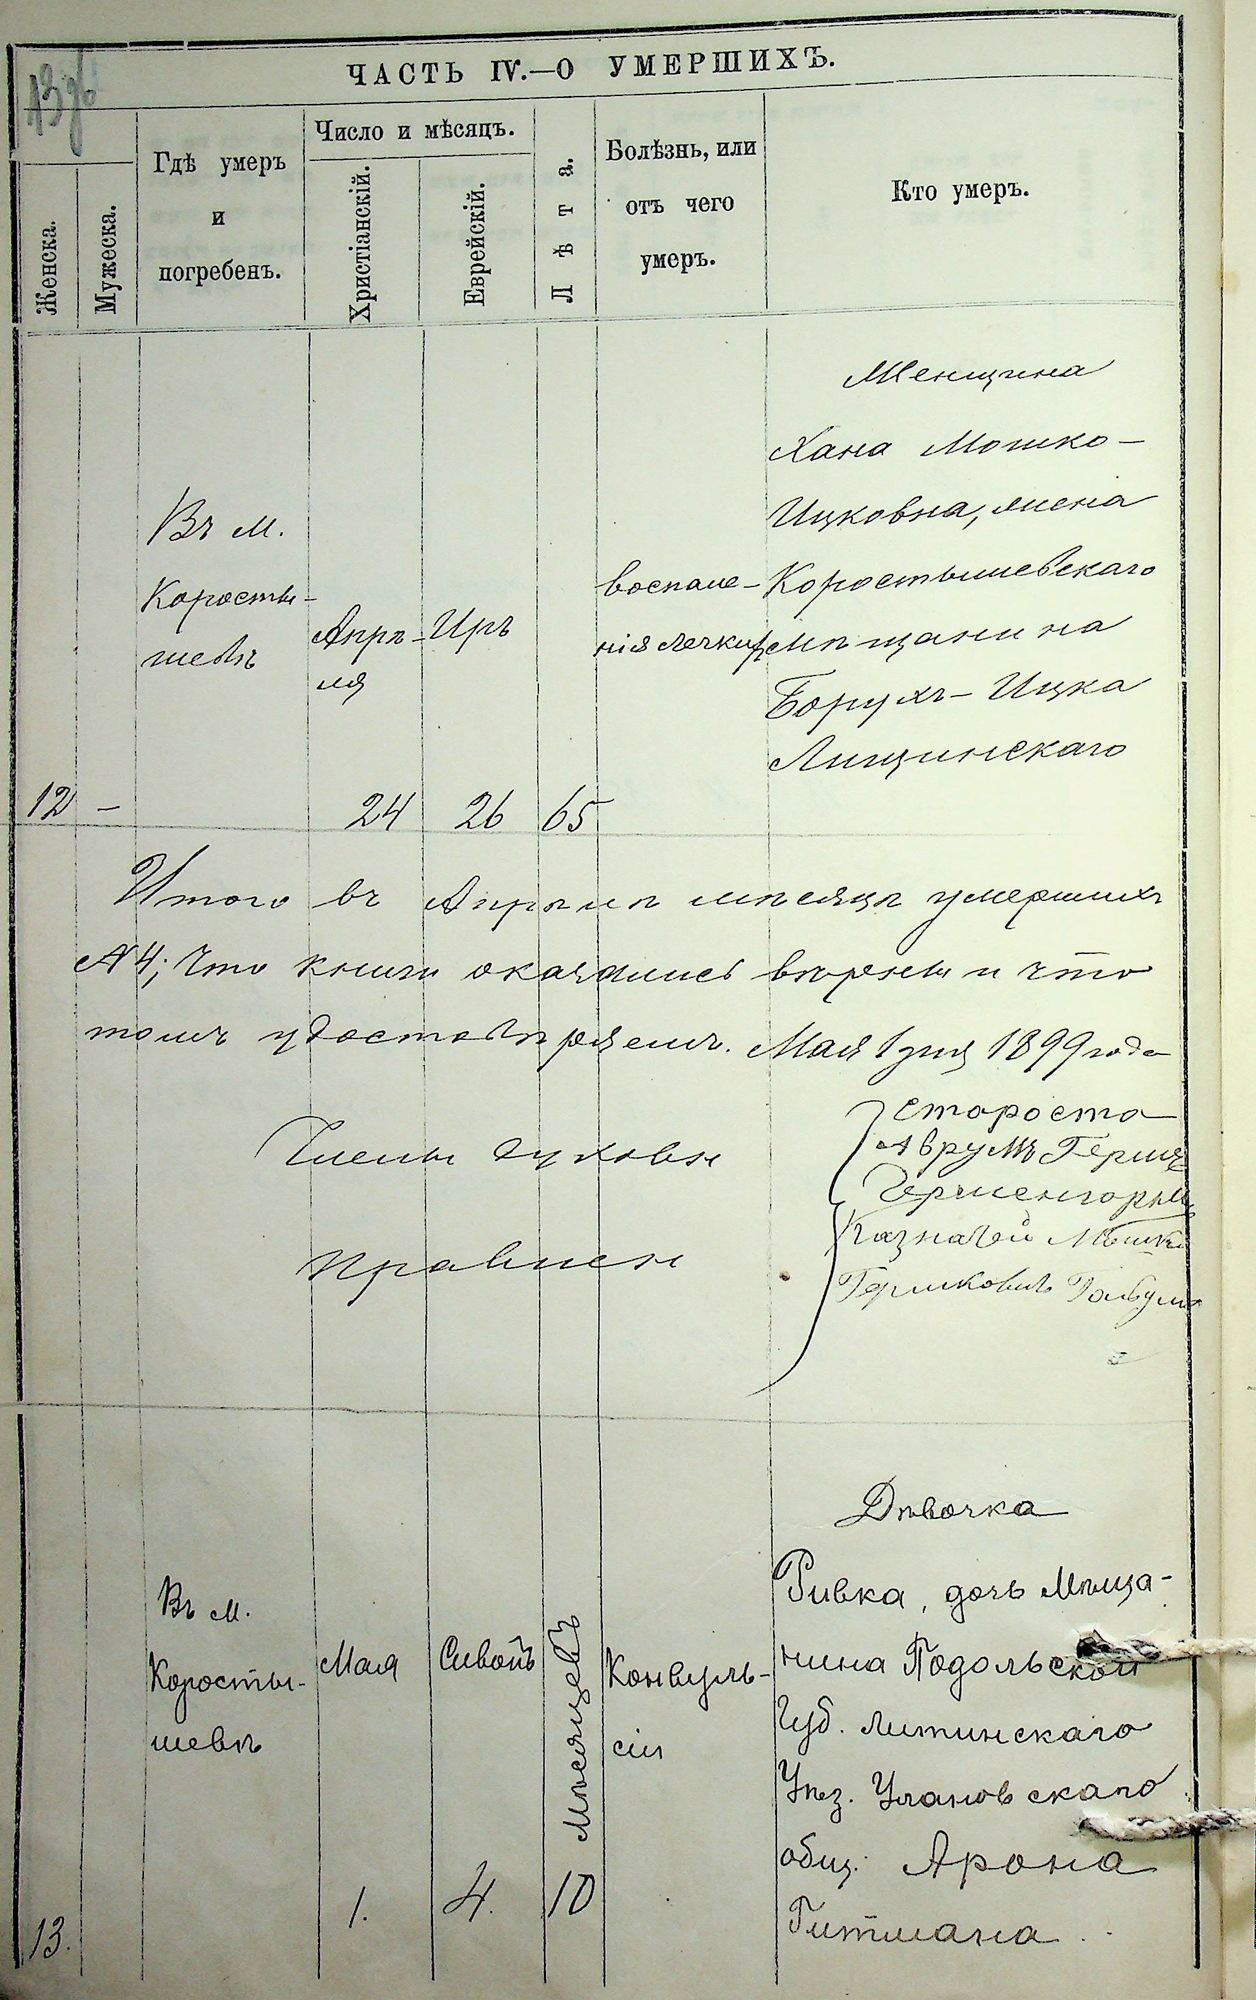 ЧАСТЬ IV.—О УМЕРШИХЪ.
Женска.
Мужеска.
Гдѣ умеръ
и
погребенъ.
Число и мѣсяцъ.
Христіанскій.
Еврейскій.
Лѣта.
Болѣзнь, или
отъ чего
умеръ.
Кто умеръ.
12
—
Въ м.
Коросты-
шевѣ
Апрѣ-
ля
24
Иръ
26
65
воспале-
нія легкихъ
Женщина
Хана Мошко-
Ицковна, жена
Коростышевскаго
мѣщанина
Борухъ-Ицка
Лищинскаго
Итого въ Апрѣлѣ мѣсяцѣ умершихъ
№ 4; Что книги оказались вѣрны и что
томъ удостовѣряемъ. Мая 1 дня 1899 года
Члены духовн
правлен
Староста
Аврумъ Герш
Казначей Мошко
Гершковичъ
13.
Въ м.
Коросты-
шевѣ
Мая
1.
Сивонъ
4.
Мѣсяцевъ
10
Конвуль-
сіи
Дѣвочка
Ривка, дочь Мѣща-
нина Подольской
Губ. Литинскаго
Уѣз. Улановскаго
общ. Арона
Гитмана